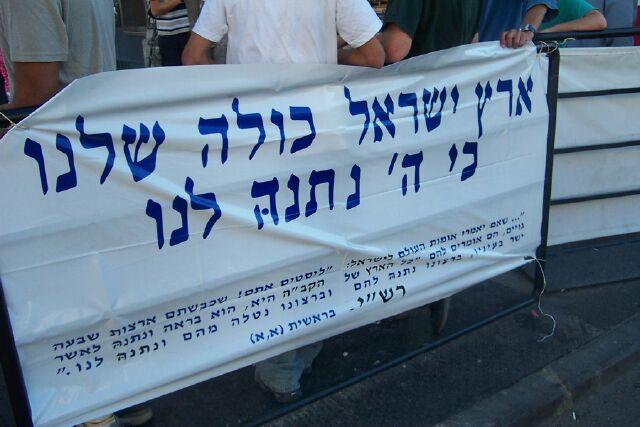 ארץ ישראל כולה שלנו
כי ה' נתנה לנו
"...שאם יאמרו אומות העולם לישראל: "ליסטים אתם! שכבשתם ארצות שבעה
גויים, הם אומרים להם "כל הארץ של הקב"ה היא, הוא בראה ונתנה לאשר
ישר בעיניו, ברצונו נתנה להם וברצונו נטלה מהם ונתנה לנו."
רש"י. בראשית (א,א)